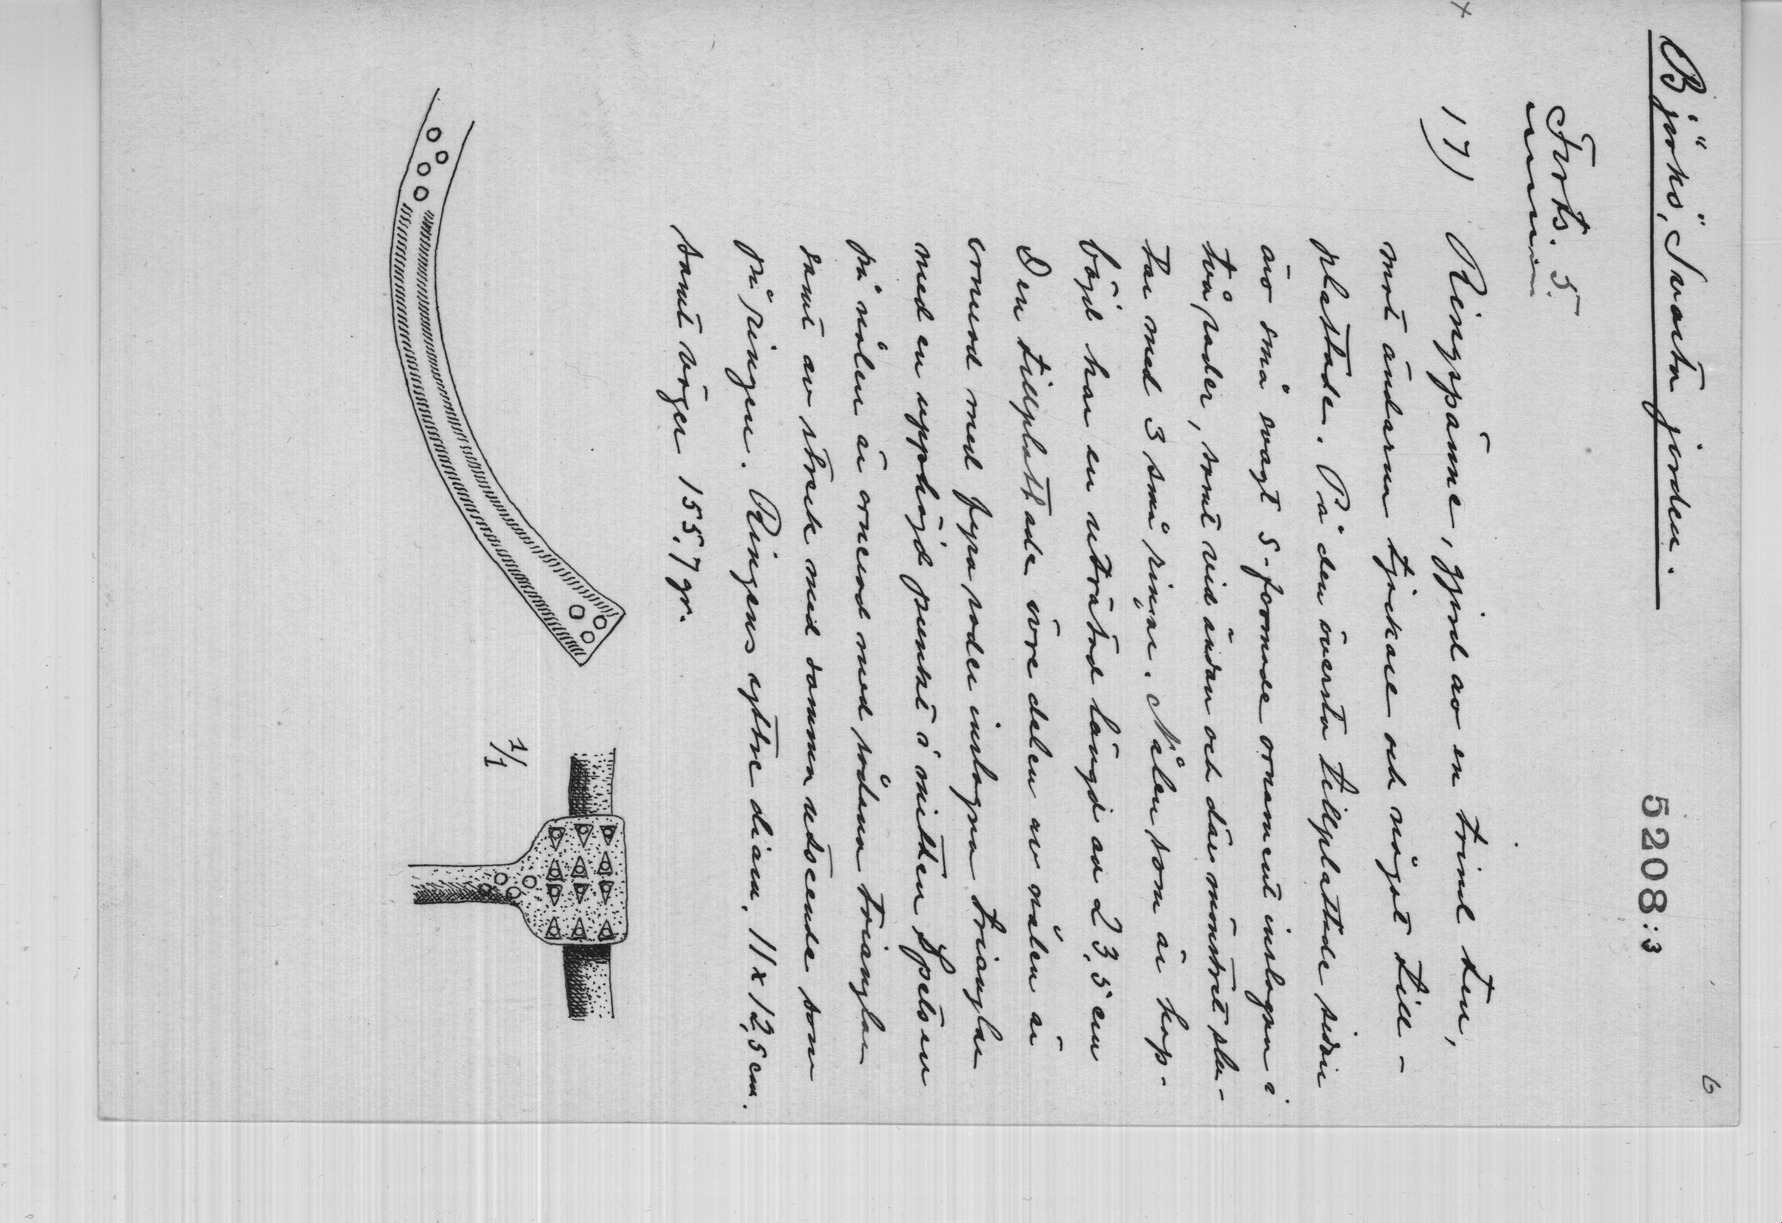 6
Björkö, Svarta jorden.
5208:3
Forts. 5.
x
17) Ringspänne, gjord av en trind ten,
mot ändarna tjockare och något till-
plattade. På den översta tillplattade sidan
äro små svagt S-formade ornament inslagna i
två rader, samt vid ändan och där mönstret slu-
tar med 3 små ringar. Nålen som är hop-
böjd har en uträtad längd av 23,5 cm
Den tillplattade övre delen av nålen är
ornerad med fyra rader inslagna trianglar
med en upphöjd punkt i mitten Spetsen
på nålen är ornerad med sådana trianglar
samt av streck med samma utseende som
på ringen. Ringens yttre diam. 11 x 12,5 cm.
samt väger 155,7 gr.
1/1